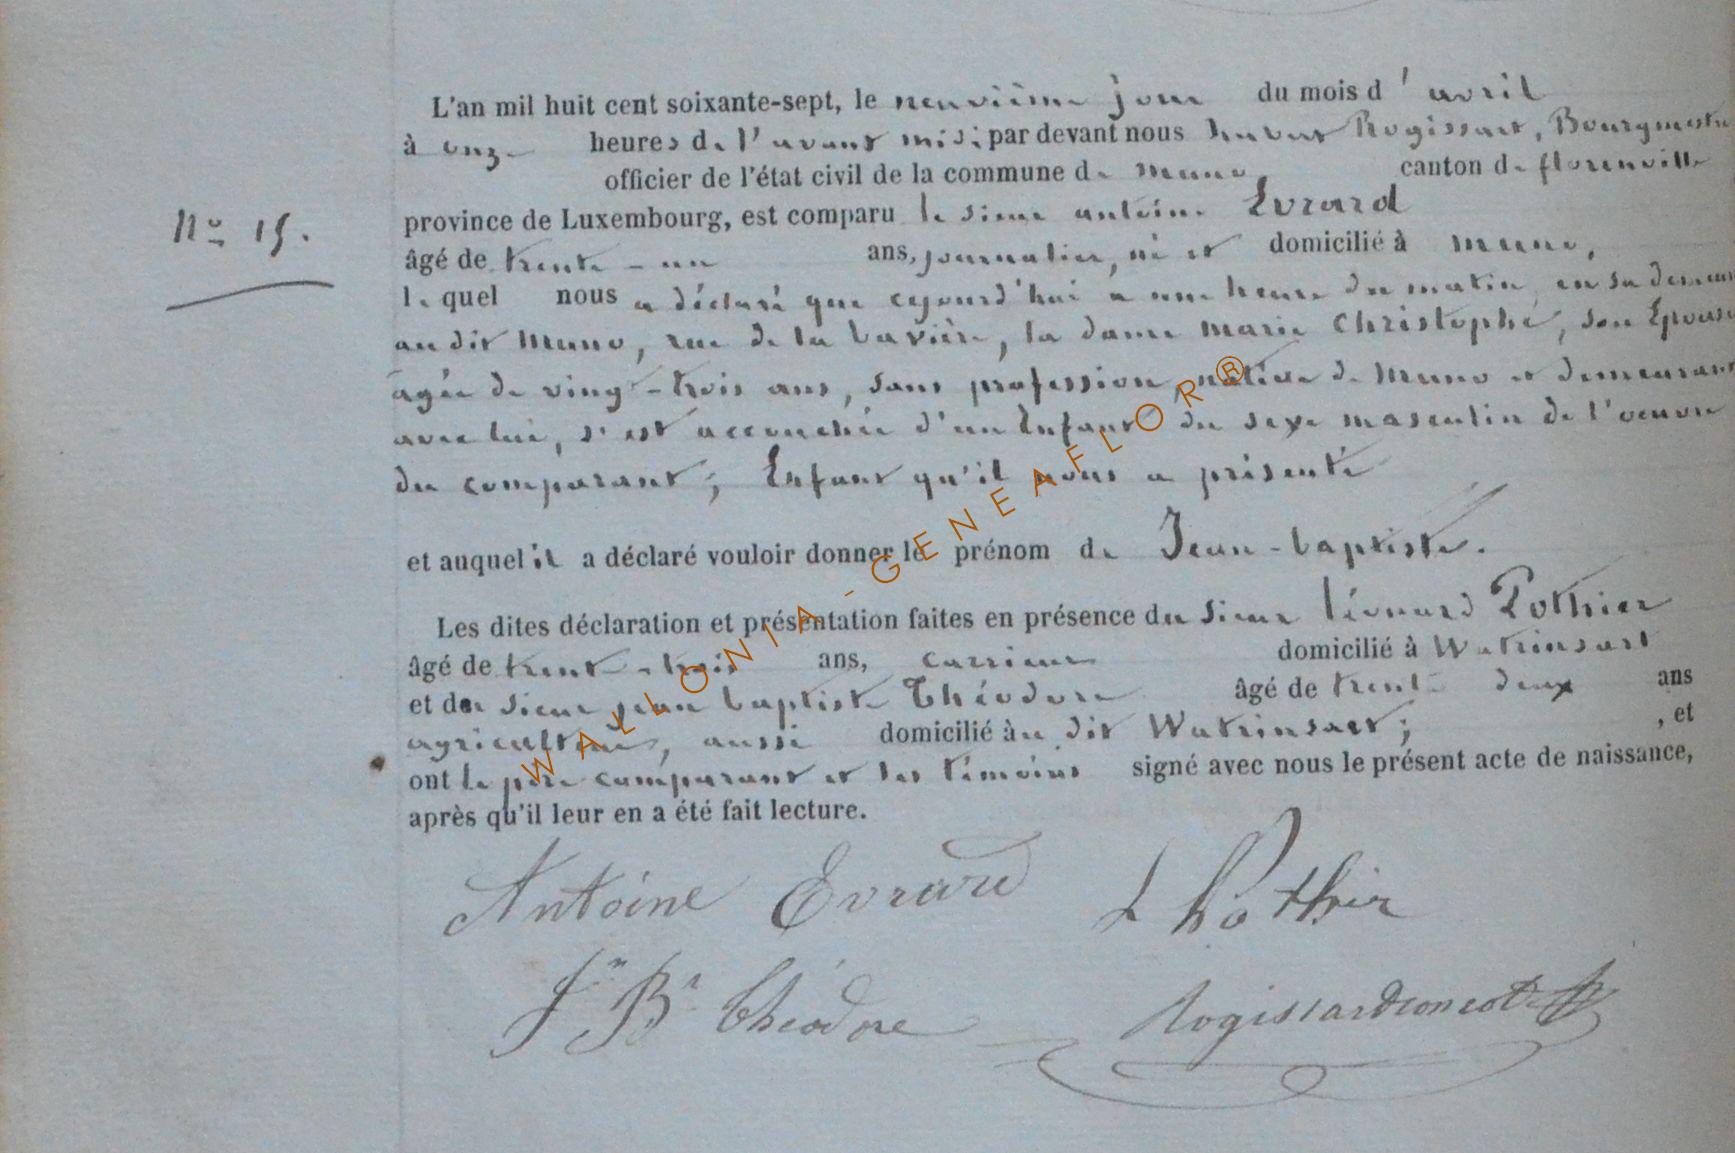 L'an mil huit cent soixante-sept, le neuvième jour du mois d'avril
à onze heures de l'avant midi par devant nous hubert Rogissart, Bourgmestre
officier de l'état civil de la commune de muno, canton de florenville
province de Luxembourg, est comparu le sieur antoine Evrard
Nº 15.
âgé de trente-un ans, journalier, né et domicilié à muno,
le quel nous a déclaré que cejourd'hui a une heure du matin, en sa demeure
au dit muno, rue de la bavière, la dame marie Christophe, son Epouse
agée de vingt-trois ans, sans profession, native de muno et demeurant
avec lui, s'est accouchée d'un Enfant du sexe masculin de l'oeuvre
du comparant; Enfant qu'il nous a présenté
et auquel il a déclaré vouloir donner le prénom de Jean-baptiste.
Les dites déclaration et présentation faites en présence du sieur léonard Pothier
âgé de trente-trois ans, carrieur domicilié à Watrinsart
et du sieur jean baptiste Théodore âgé de trente deux ans
agriculteur, aussi domicilié au dit Watrinsart; , et
ont le père comparant et les témoins signé avec nous le présent acte de naissance,
après qu'il leur en a été fait lecture.
Antoine Evrard L Pothier
Jn Bt Théodore Rogissart
WALLONIA-GENEAFLOR®